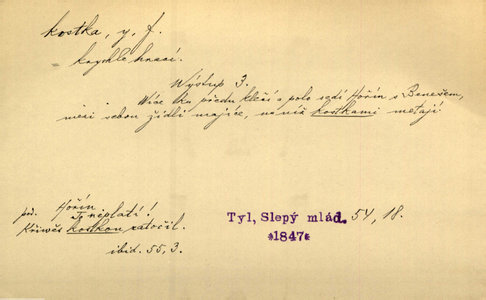 kostka, y, f.
krychle hrací.
Výstup 3.
Více ku předu klečí a polo sedí Hořín s Benešem,
mezi sebou židli majíce, na níž kostkami metají
Hořín
neplatí!
Křivěs kostkou zatočil.
ibid. 55, 3.
Tyl, Slepý mlád. 54, 18.
*1847*